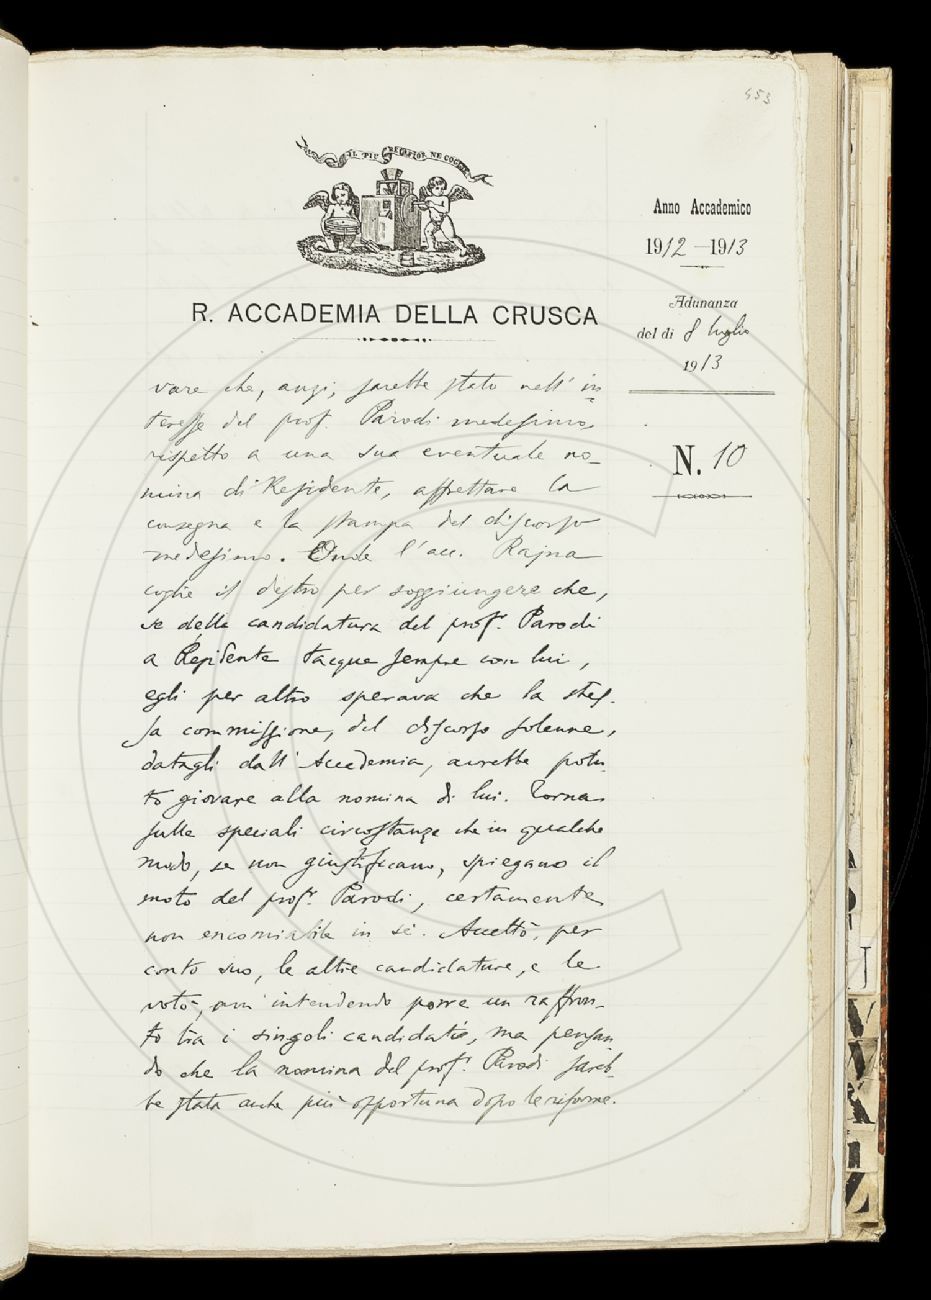 453
IL PIÙ BEL FIOR NE COGLIE
R. ACCADEMIA DELLA CRUSCA
Anno Accademico
1912–1913
Adunanza
del dì 8 luglio
1913
N. 10
vare che, anzi, sarebbe stato nell' in
teresse del prof. Parodi medesimo,
rispetto a una sua eventuale no_
mina di Residente, affrettare la
consegna e la stampa del discorso
medesimo. Onde l'acc. Rajna
coglie il destro per soggiungere che,
se della candidatura del prof. Parodi
a Residente tacque sempre con lui,
egli per altro sperava che la stes-
sa commissione, del discorso solenne,
datagli dall' Accademia, avrebbe potu
to giovare alla nomina di lui. Torna
sulle speciali circostanze che in qualche
modo, se non giustificano, spiegano il
moto del prof. Parodi, certamente
non encomiabile in sè. Accettò, per
conto suo, le altre candidature, e le
votò, non intendendo porre un raffron-
to tra i singoli candidati, ma pensan
do che la nomina del prof. Parodi sareb-
be stata anche più opportuna dopo le riforme.